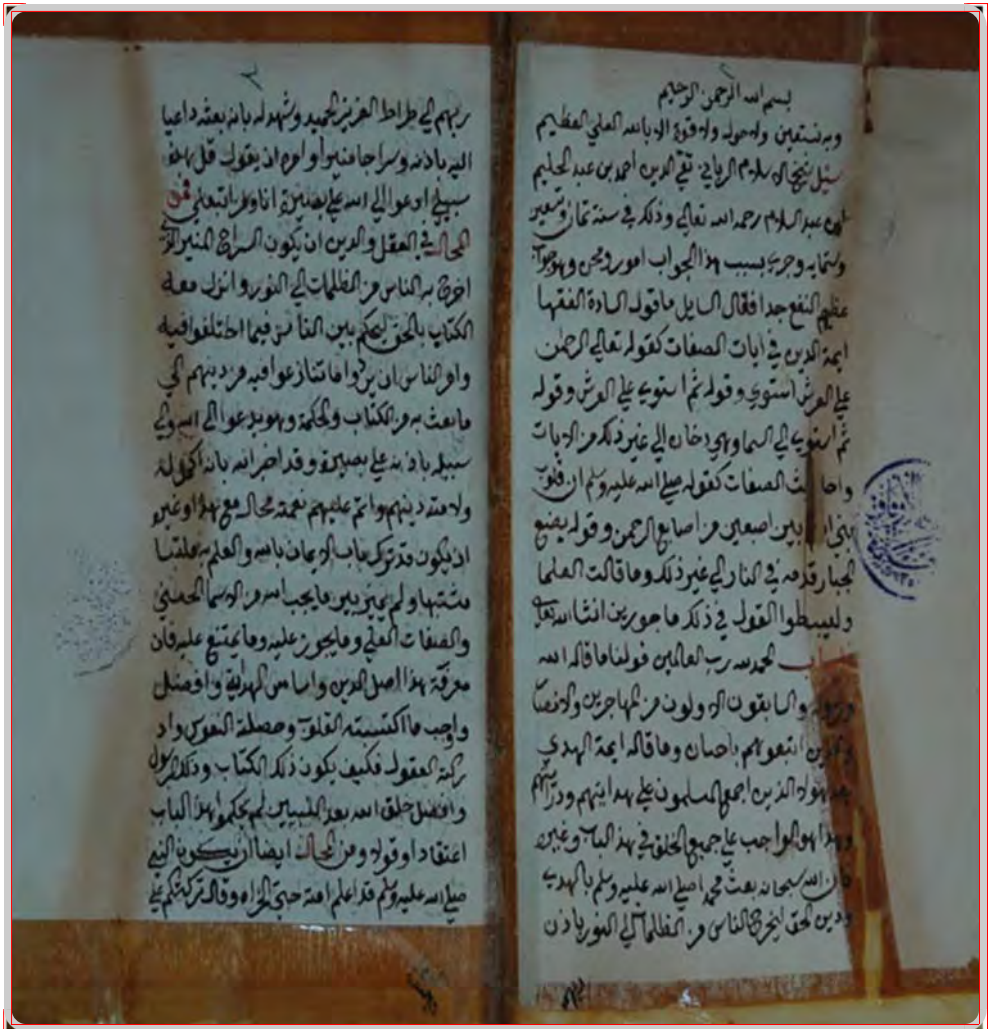 بسم الله الرحمن الرحيم
وبه نستعين ولا حول ولا قوة الا بالله العلي العظيم
سئل شيخ الاسلام الرباني تقي الدين احمد بن عبد الحليم
ابن عبد السلام رحمه الله تعالي وذلك في سنة ثمان وتسعين
وستمايه وجري بسبب هذا الجواب امور ومحن وهو جواب
عظيم النفع جدا فقال السايل ما قول السادة الفقها
ايمة الدين في ايات الصفات كقوله تعالي الرحمن
علي العرش استوي وقوله ثم استوي علي العرش وقوله
ثم استوي الي السما وهي دخان الي غير ذلك من الايات
واحاديث الصفات كقوله صلي الله عليه وسلم ان قلوب
بني ادم بين اصبعين من اصابع الرحمن وقوله يضع
الجبار قدمه في النار الي غير ذلك وما قالت العلما
وليبسطوا القول في ذلك ماجورين انشا الله تعالي
الجواب الحمد لله رب العالمين قولنا ما قاله الله
ورسوله والسابقون الاولون من المهاجرين والانصار
والذين اتبعوهم باحسان وما قاله ايمة الهدي
بعد هولاء الذين اجمع المسلمون علي هدايتهم ودرايتهم
وهذا هو الواجب علي جميع الخلق في هذا الباب وغيره
فان الله سبحانه بعث محمدا صلي الله عليه وسلم بالهدي
ودين الحق ليخرج الناس من الظلمات الي النور باذن
٢
ربهم الي صراط العزيز الحميد وشهد له بانه بعثه داعيا
اليه باذنه وسراجا منيرا وامره ان يقول قل هذه
سبيلي ادعوا الي الله علي بصيرة انا ومن اتبعني فمن
المحال في العقل والدين ان يكون السراج المنير الذي
اخرج به الناس من الظلمات الي النور وانزل معه
الكتاب بالحق ليحكم بين الناس فيما اختلفوا فيه
وامر الناس ان يردوا ما تنازعوا فيه من دينهم الي
ما بعث به من الكتاب والحكمة وهو يدعوا الي الله والي
سبيله باذنه علي بصيرة وقد اخبر الله بانه اكمل له
ولامته دينهم واتم عليهم نعمته محال مع هذا وغيره
ان يكون قد ترك باب الايمان بالله والعلم به ملتبسا
مشتبها ولم يميز بين ما يجب لله من الاسما الحسني
والصفات العلي وما يجوز عليه وما يمتنع عليه فان
معرفة هذا اصل الدين واساس الهداية وافضل
واجب ما اكتسبته القلوب وحصلته النفوس واد
ركته العقول فكيف يكون ذلك الكتاب وذلك الرسول
وافضل خلق الله بعد النبيين لم يحكموا هذا الباب
اعتقادا وقولا ومن المحال ايضا ان يكون النبي
صلي الله عليه وسلم قد اعلم امته حتي الخراه وقال تركتكم علي